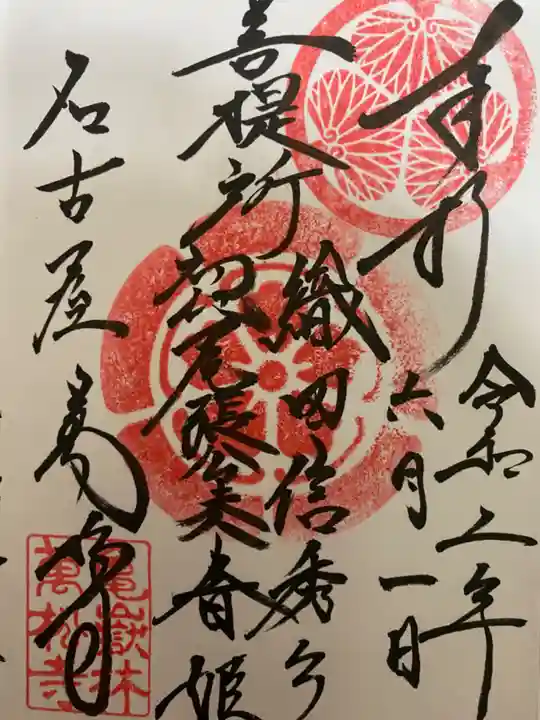 奉拝
令和二年
六月一日
織田信秀公
菩提所 尾張 春姫
名古屋 萬松寺
亀嶽林
萬松寺